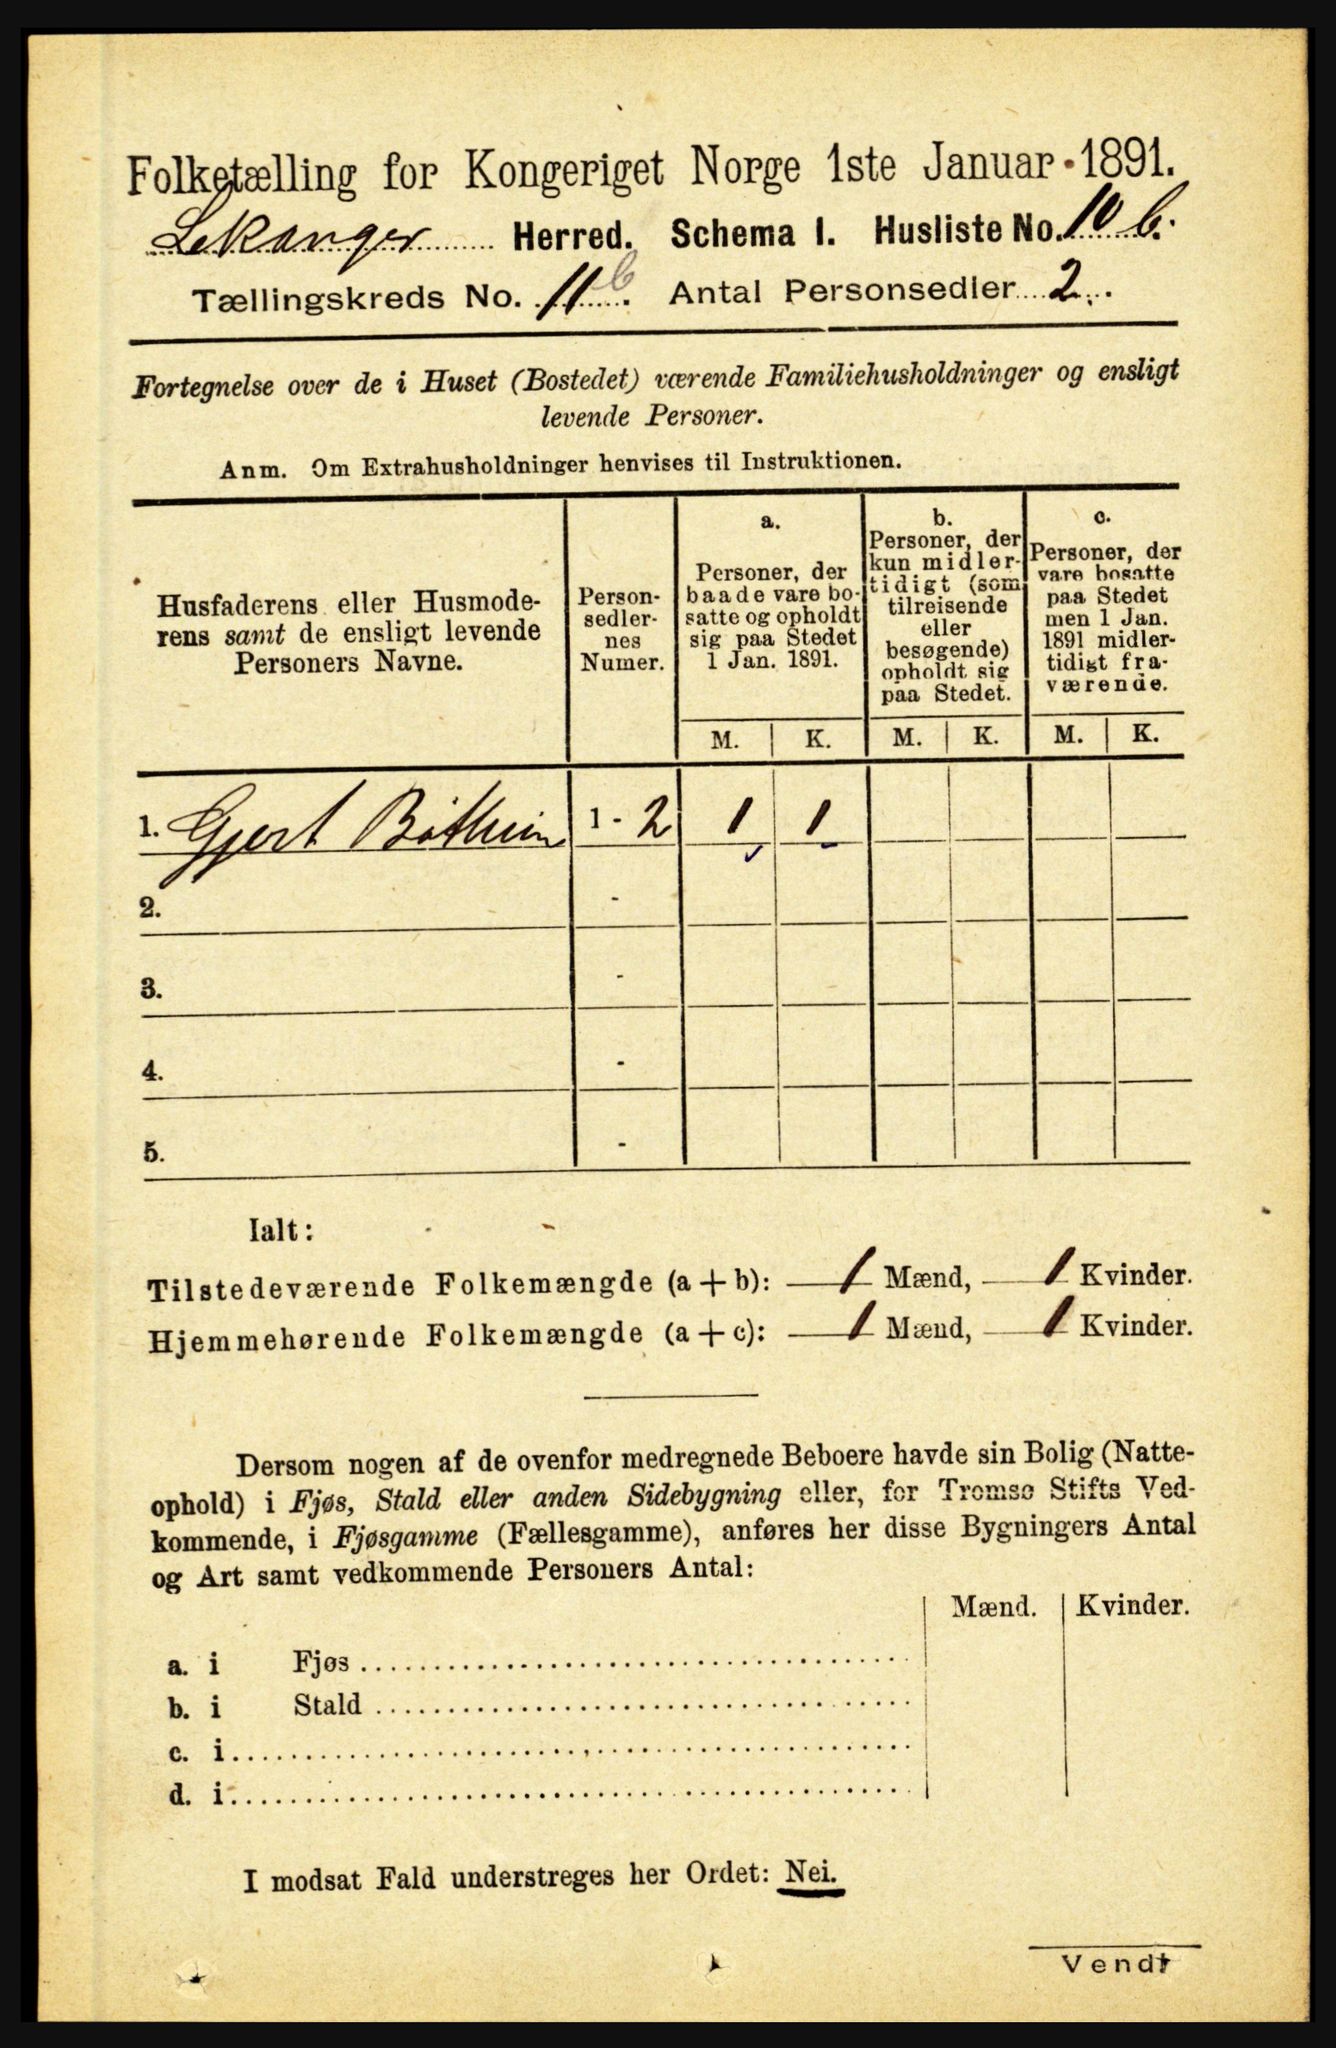 Folketælling for Kongeriget Norge 1ste Januar 1891.
Lekanger Herred. Schema 1. Husliste No. 10 b.
Tællingskreds No. 11 b. Antal Personsedler 2.
Fortegnelse over de i Huset (Bostedet) værende Familiehusholdninger og ensligt
levende Personer.
Anm. Om Extrahusholdninger henvises til Instruktionen.
Husfaderens eller Husmode-
rens samt de ensligt levende
Personers Navne.
Person-
sedler-
nes
Numer.
a.
Personer, der
baade vare bo-
satte og opholdt
sig paa Stedet
1 Jan. 1891.
b.
Personer, der
kun midler-
tidigt (som
tilreisende
eller
besøgende)
opholdt sig
paa Stedet.
c.
Personer, der
vare bosatte
paa Stedet
men 1 Jan.
1891 midler-
tidigt fra-
værende.
M. K. M. K. M. K.
1. Gjert Bøthun 1 - 2 1 1
2. -
3. -
4. -
5. -
Ialt:
Tilstedeværende Folkemængde (a + b): 1 Mænd, 1 Kvinder.
Hjemmehørende Folkemængde (a + c): 1 Mænd, 1 Kvinder.
Dersom nogen af de ovenfor medregnede Beboere havde sin Bolig (Natte-
ophold) i Fjøs, Stald eller anden Sidebygning eller, for Tromsø Stifts Ved-
kommende, i Fjøsgamme (Fællesgamme), anføres her disse Bygningers Antal
og Art samt vedkommende Personers Antal:
Mænd. Kvinder.
a. i Fjøs
b. i Stald
c. i
d. i
I modsat Fald understreges her Ordet: Nei.
Vendt